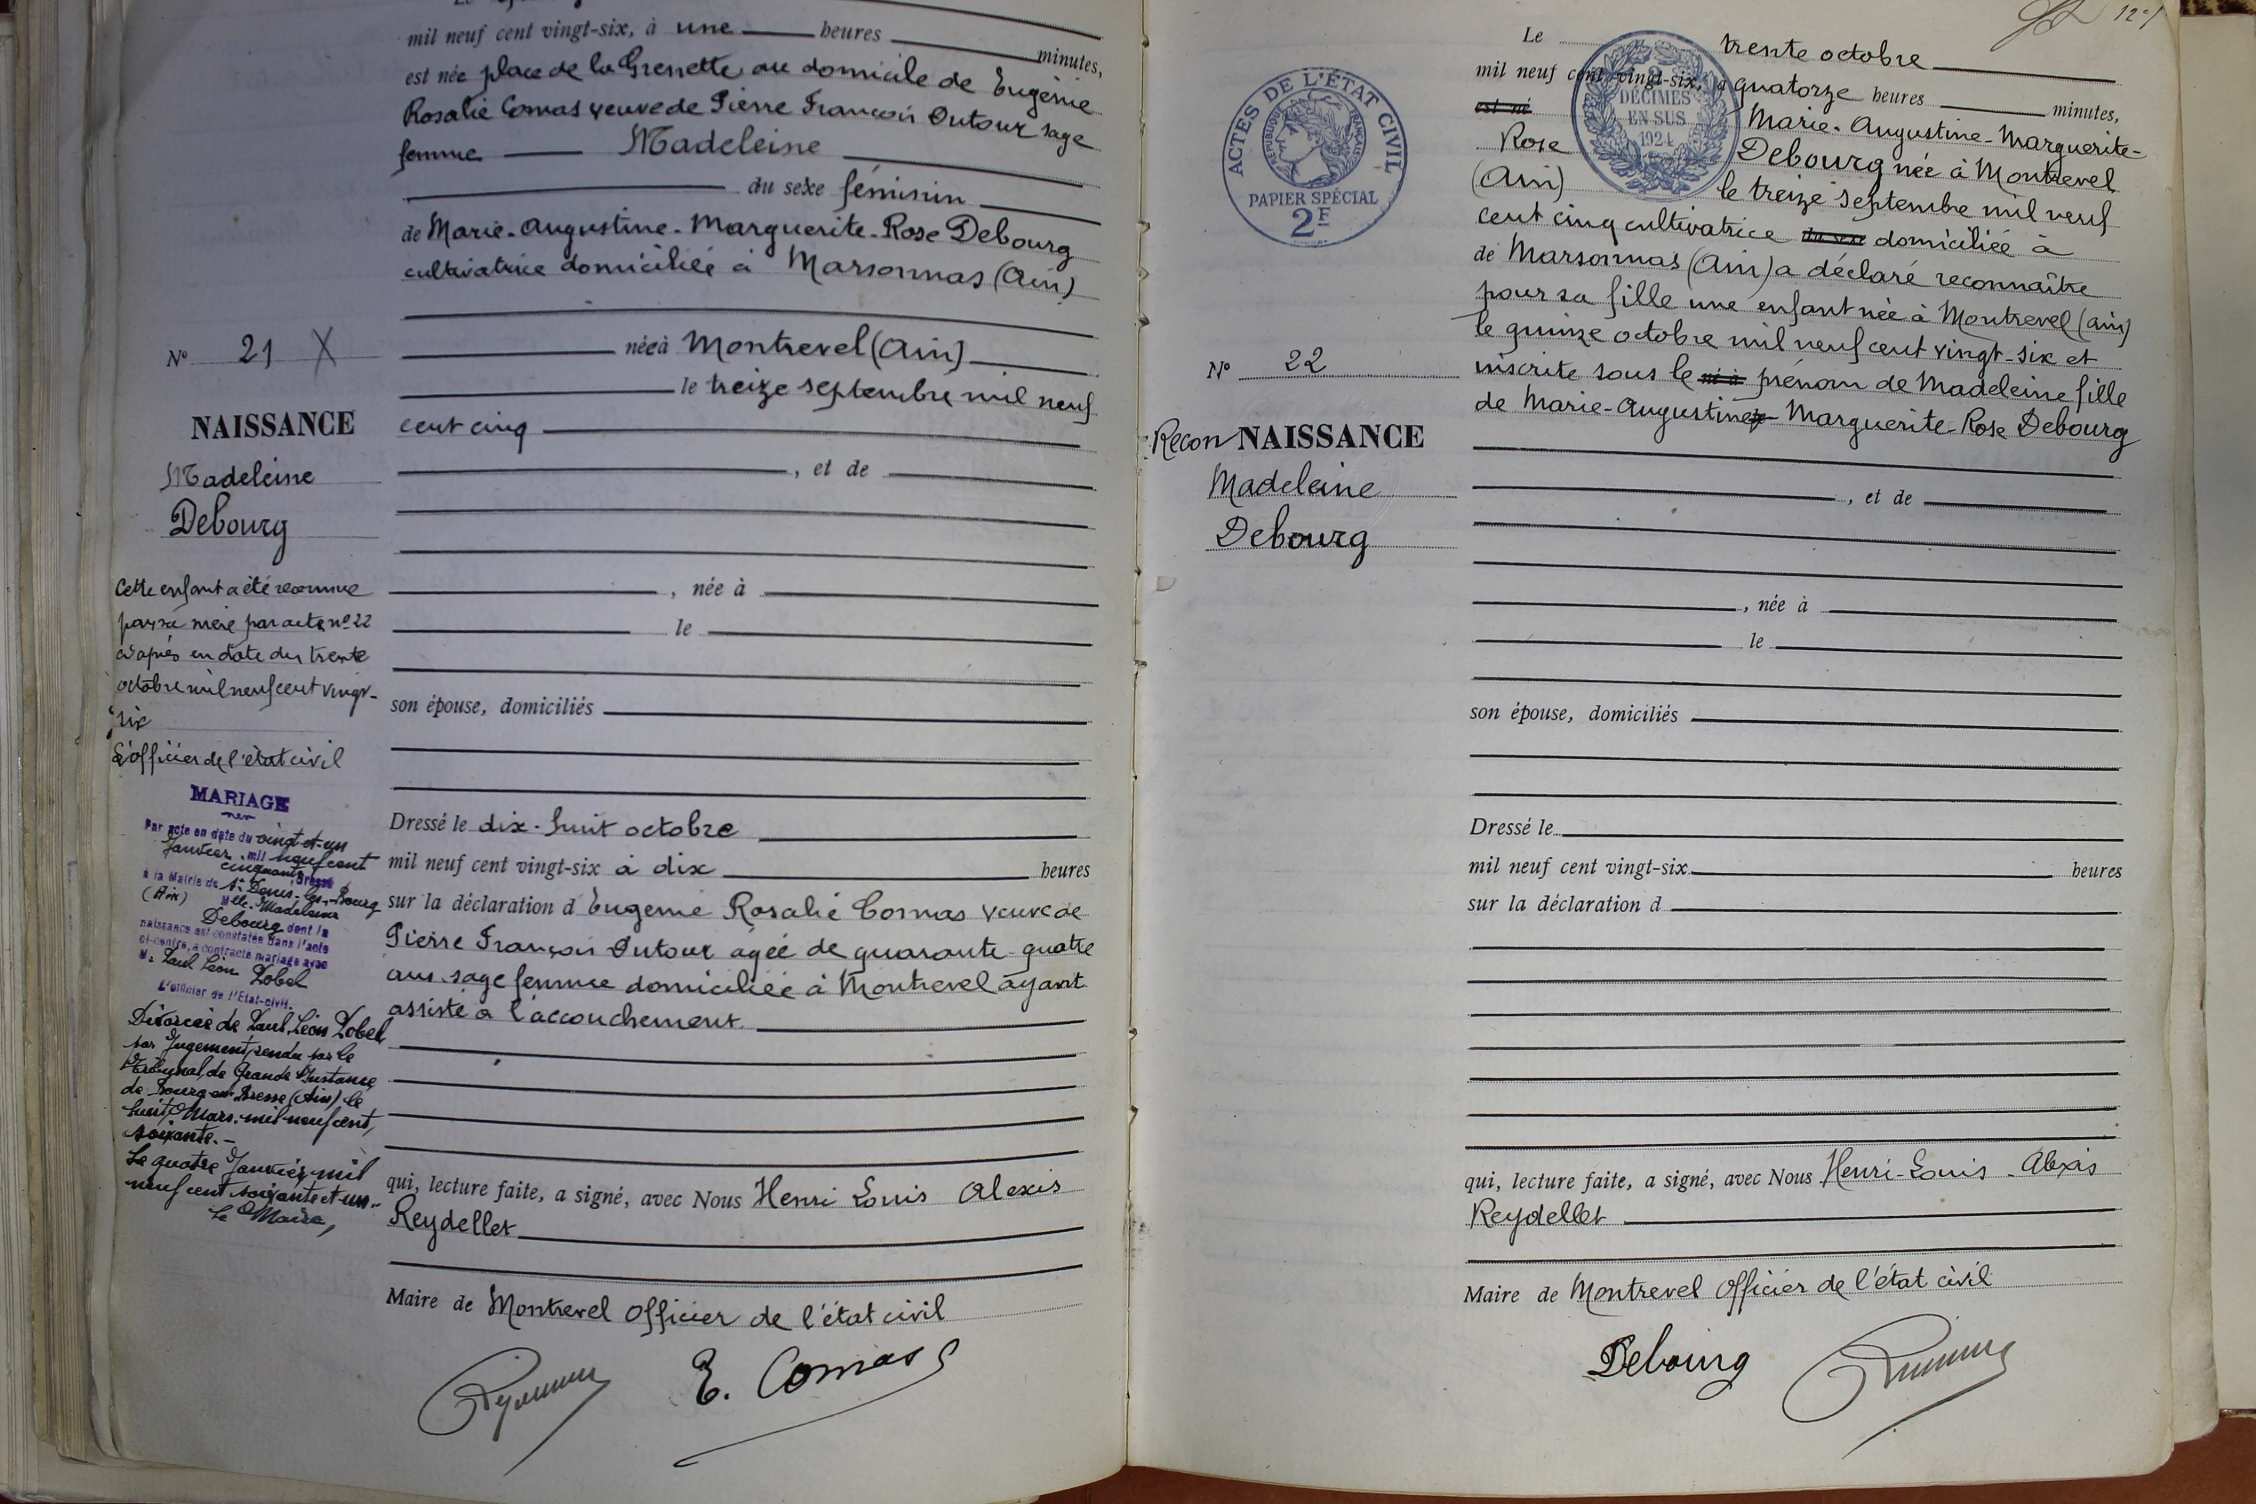 mil neuf cent vingt-six, à une heures minutes,
est née place de la Grenette au domicile de Eugénie
Rosalie Comas veuve de Pierre François Dutour sage
femme Madeleine
du sexe féminin
de Marie-Augustine-Marguerite-Rose Debourg
cultivatrice domiciliée à Marsonnas (Ain)
née à Montrevel (Ain)
le treize septembre mil neuf
cent cinq
, et de
, née à
le
son épouse, domiciliés
Dressé le dix-huit octobre
mil neuf cent vingt-six à dix heures
sur la déclaration d Eugénie Rosalie Comas veuve de
Pierre François Dutour agée de quarante-quatre
ans sage femme domiciliée à Montrevel ayant
assisté à l'accouchement
qui, lecture faite, a signé, avec Nous Henri Louis Alexis
Reydellet
Maire de Montrevel officier de l'état civil
E. Comas
N° 21 X
NAISSANCE
Madeleine
Debourg
Cette enfant a été reconnue
par sa mère par acte n° 22
ci-après en date du trente
octobre mil neuf cent vingt-
six
L'officier de l'état civil
MARIAGE
Par acte en date du vingt-et-un
Janvier mil neuf cent
cinquante Dressé
à la Mairie de St Denis-les-Bourg
(Ain) Melle Madeleine
Debourg dont la
naissance est constatée dans l'acte
ci-contre, a contracté mariage avec
Mr Paul Léon Pobel
L'officier de l'Etat-civil.
Divorcée de Paul, Léon Pobel
par Jugement rendu par le
Tribunal de Grande Instance
de Bourg-en-Bresse (Ain) le
huit Mars mil neuf cent
soixante.-
Le quatre Janvier mil
neuf cent soixante et un.-
Le Maire,
12
ACTES DE L'ÉTAT CIVIL
RÉPUBLIQUE FRANÇAISE
PAPIER SPÉCIAL
2F
2
DÉCIMES
EN SUS
1924
Le trente octobre
mil neuf cent vingt-six, à quatorze heures minutes,
est né Marie-Augustine-Marguerite-
Rose Debourg née à Montrevel
(Ain) le treize septembre mil neuf
cent cinq cultivatrice du sexe domiciliée à
de Marsonnas (Ain) a déclaré reconnaître
pour sa fille une enfant née à Montrevel (Ain)
le quinze octobre mil neuf cent vingt-six et
inscrite sous le né à prénom de Madeleine fille
de Marie-Augustine- Marguerite-Rose Debourg
, et de
, née à
le
son épouse, domiciliés
Dressé le
mil neuf cent vingt-six heures
sur la déclaration d
qui, lecture faite, a signé, avec Nous Henri-Louis-Alexis
Reydellet
Maire de Montrevel officier de l'état civil
Debourg
N° 22
Recon NAISSANCE
Madeleine
Debourg